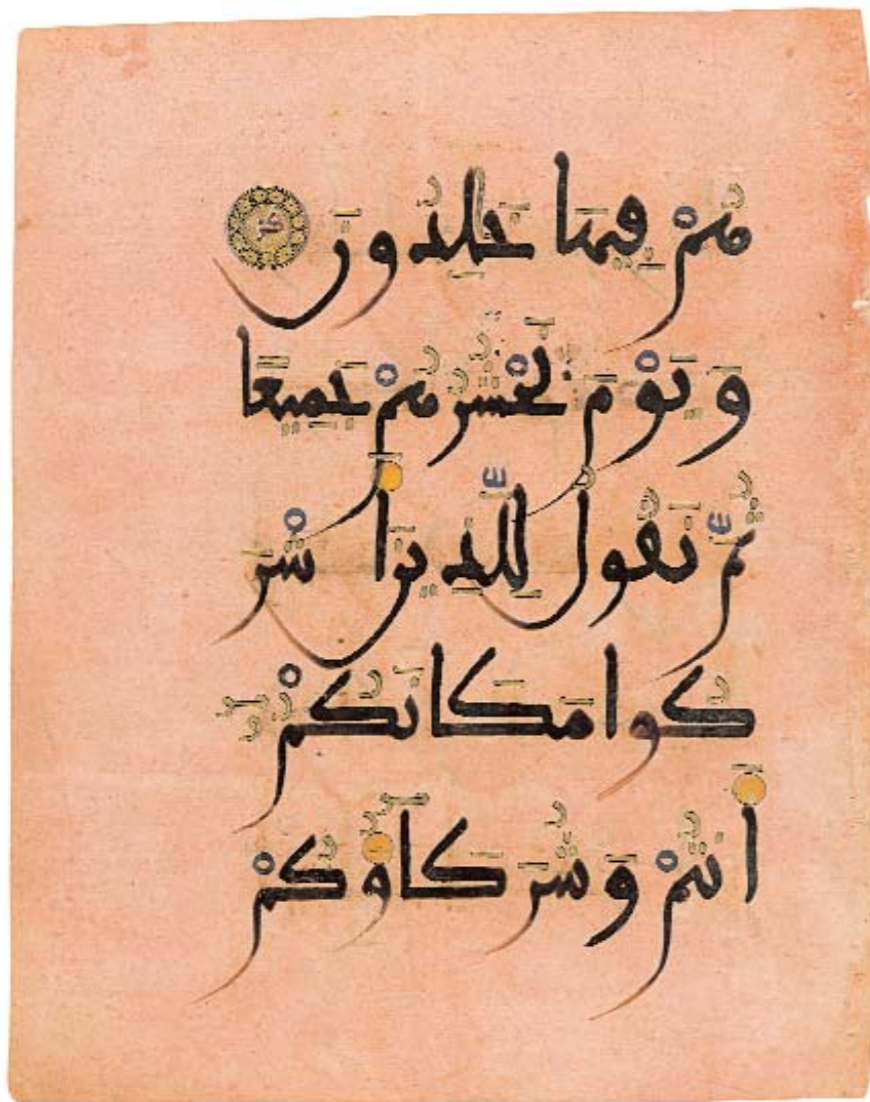 هُمْ فِيهَا خَٰلِدُونَ
وَيَوْمَ نَحْشُرُهُمْ جَمِيعًا
ثُمَّ نَقُولُ لِلَّذِينَ أَشْرَ
كُوا مَكَانَكُمْ
أَنتُمْ وَشُرَكَاؤُكُمْ